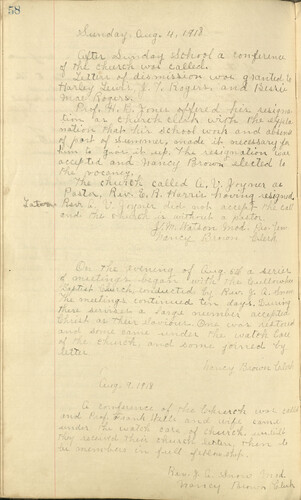 58
Sunday, Aug. 11, 1918
After Sunday School a conference
of the church was called.
Letters of dismission was granted to
Harley Lewis, J. T. Rogers, and Bessie
Mae Rogers.
Prof. H. B. Jones offered his resigna-
tion as church clerk with the expla-
nation that his school work and absence
of part of summer, made it necessary for
him to give it up. The resignation was
accepted and Nancy Brown elected to
the vacancy.
The church called A. V. Joyner as
Pastor, Rev. E. R. Harris having resigned.
Later Rev. A. V. Joyner did not accept the call
and the church is without a pastor
J. M. Watson Mod. Pro Tem
Nancy Brown Clerk
On the evening of Aug. 25 a series
of meetings began with the
Baptist Church conducted by Rev. J. A. Snow
The meetings continued ten days. During
these services a large number accepted
Christ as their Saviour. One was restored
and some came under the watch care
of the church, and some joined by
letter.
Nancy Brown Clerk
Aug. 9, 1918
A conference of the Church was called
and Prof. Frank Hills and wife came
under the watch care of church until
they received their church letters, then to
be members in full fellowship.
Rev. J. A. Snow Mod.
Nancy Brown Clerk